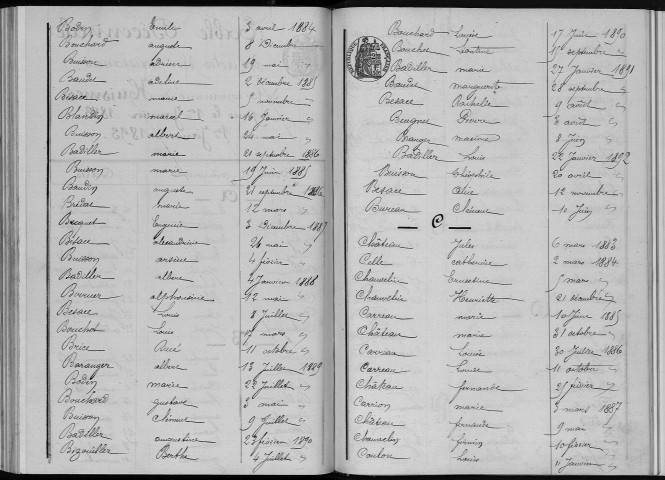 Bodin Emile 3 avril 1884
Bouchard auguste 8 Décembre
Buisson adrien 19 mai
Baudet adeline 2 Décembre 1885
Besace marie 5 novembre
Blandin marcel 16 Janvier
Buisson albert 24 mai
Badiller marie 21 septembre 1886
Buisson marie 19 Juin 1885
Baudin auguste 21 septembre 1886
marie 12 mars
Becquet Eugénie 3 Décembre 1887
Besace alexandrine 26 mai
Buisson arsène 4 février
Badiller albert 4 Janvier 1888
alphonsine 12 mai
Besace Louis 8 Juillet
Bouchet Louis 17 mars
Brice René 11 octobre
Baranger albert 13 Juillet 1889
Bodin marie 22 Juillet
Bouchard gustave 3 mai
Buisson 9 Juillet
Badiller augustine 23 février 1890
Berthe 4 Juillet
Bouchard 17 Juin 1890
Bouchet 15 septembre
Badiller marie 27 Janvier 1891
Baudet marguerite 28 septembre
Besace 9 août
Pierre 8 août
Branger maxime 8 Juin
Badiller Louis 22 Janvier 1892
Buisson Théophile 20 avril
Besace Alice 12 novembre
Bureau 10 Juin
C
Château Jules 6 mars 1883
Celle catherine 2 mars 1884
Chauvelin Ernestine 5 mars
Chauvelin Henriette 21 décembre
Carreau marie 10 Juin 1885
Château marie 31 octobre
Carreau Louise 30 Juillet 1886
Carreau Louise 11 octobre
Château fernande 25 février
Carrion marie 3 mars 1887
Château fernande 9 mai
Chauvelin firmin 10 février
Couton Louis 11 Janvier